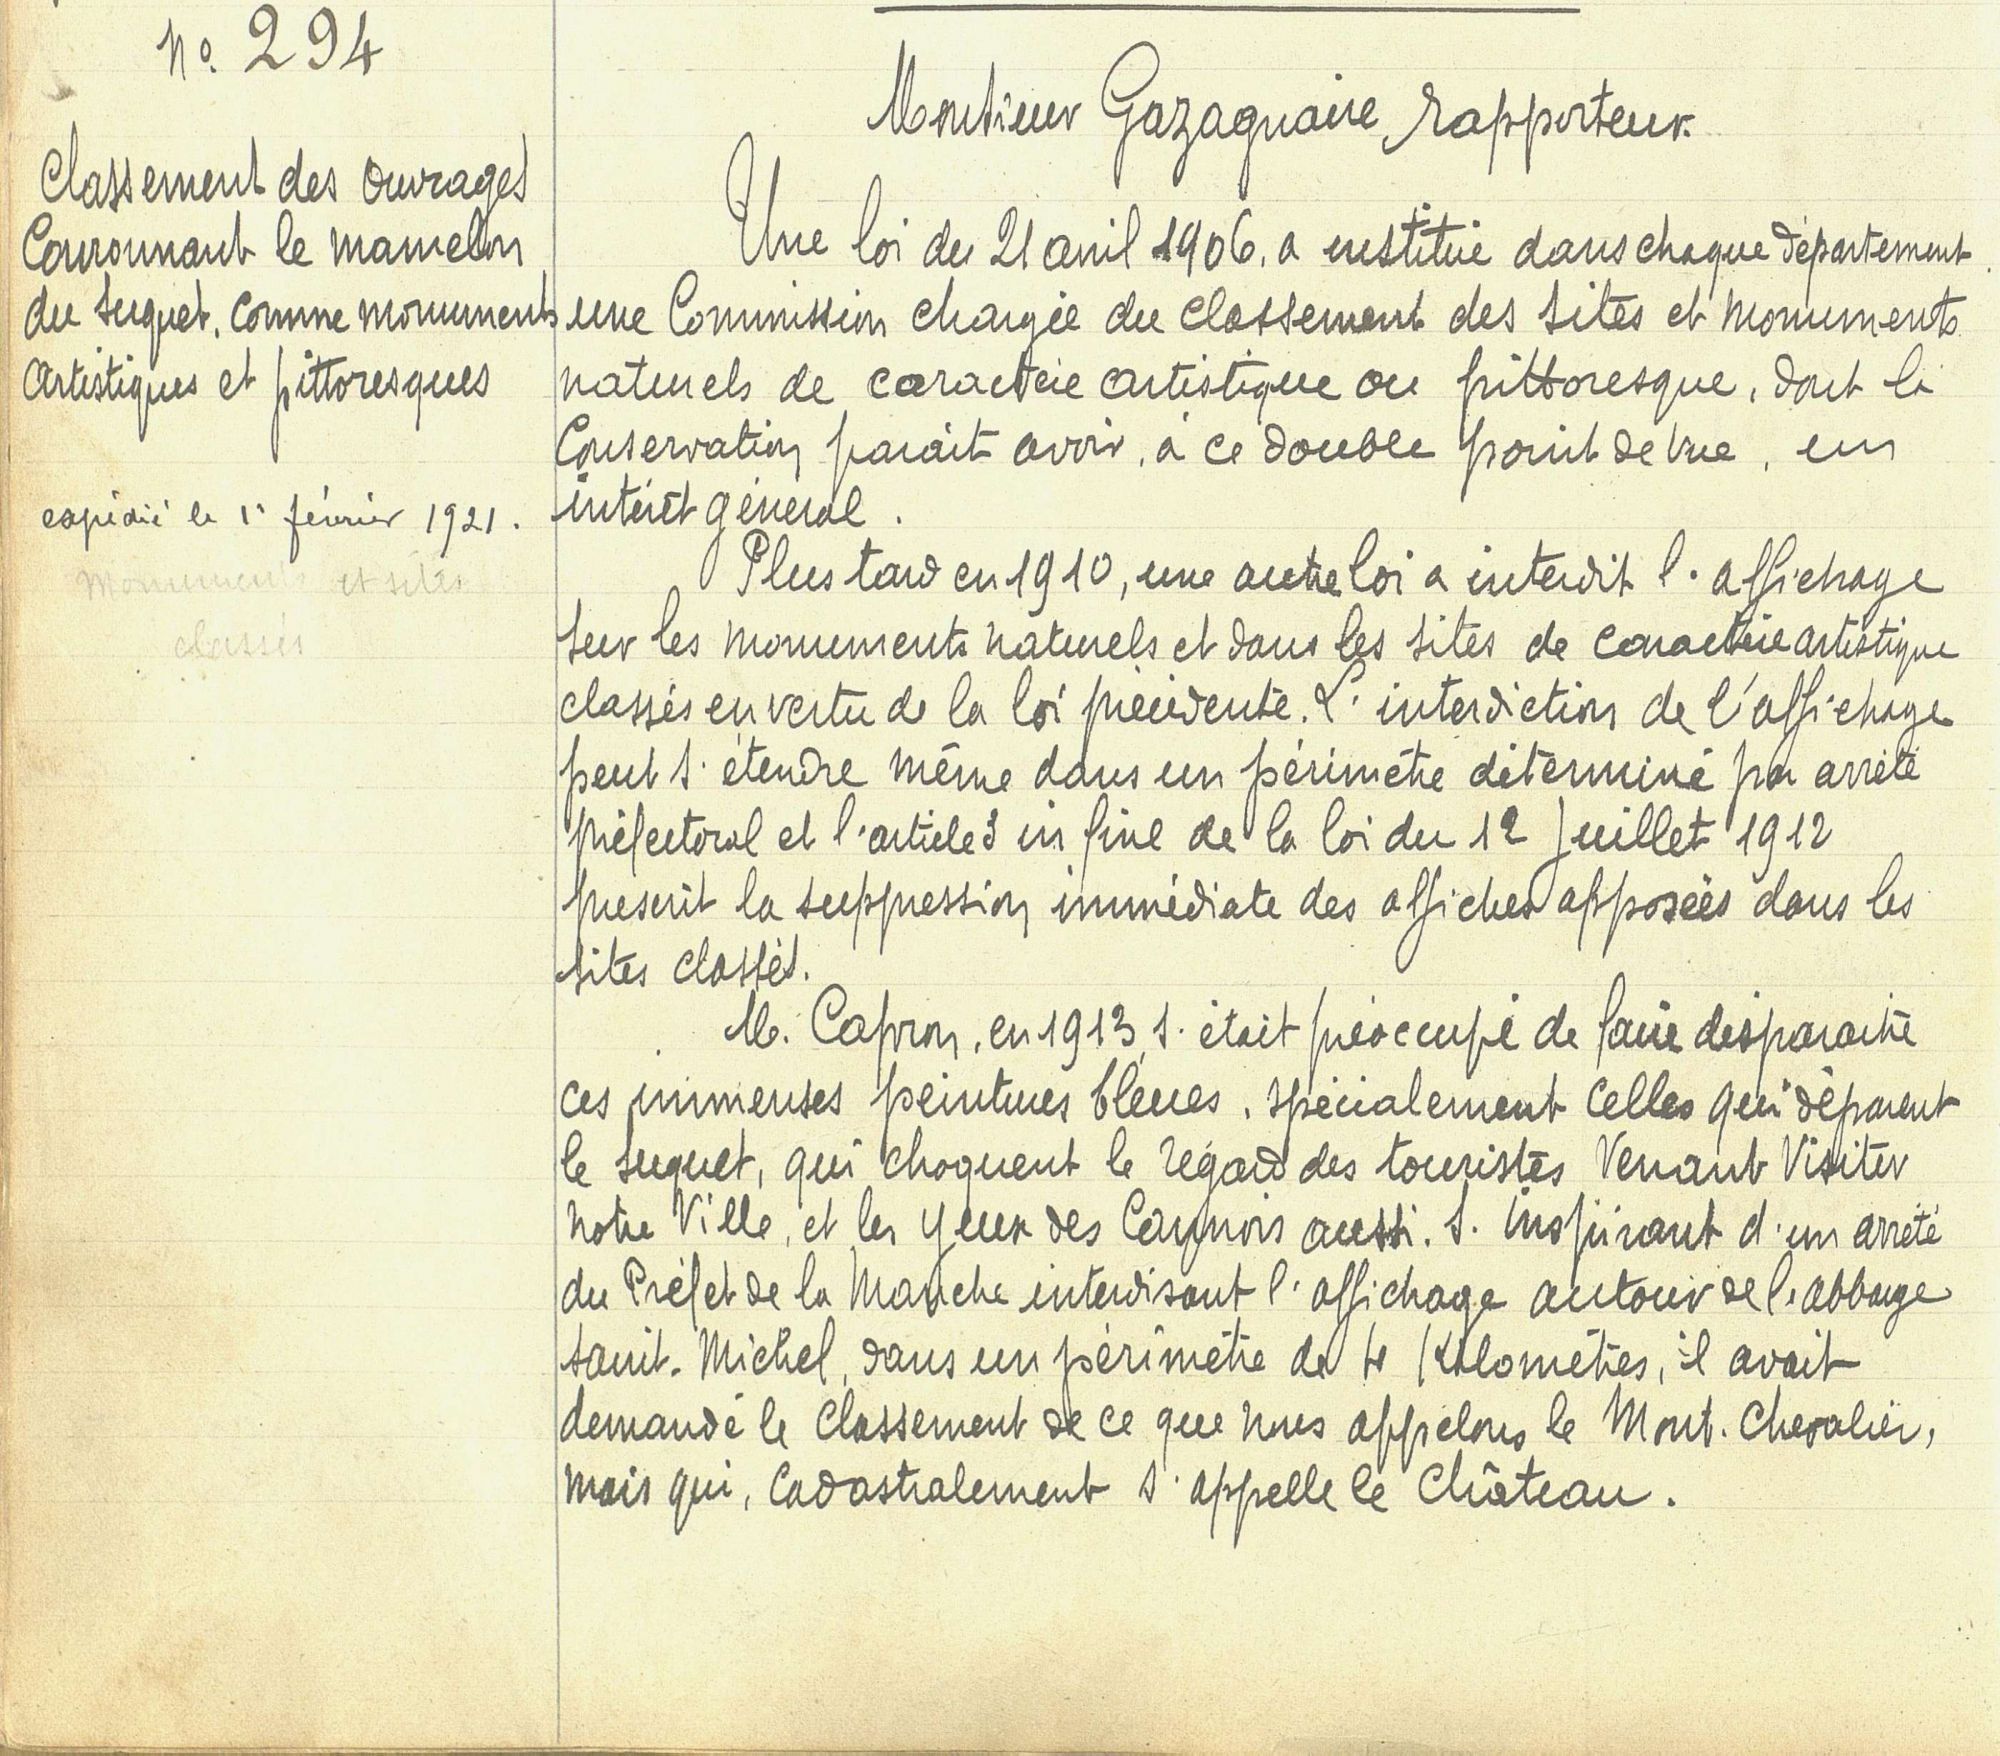 No. 294
Classement des Ouvrages
Couronnant le mamelon
du Suquet, comme monuments
Artistiques et pittoresques
expédié le 1er février 1921.
Monuments et sites
classés
Monsieur Gazagnaire, rapporteur.
Une loi du 21 avril 1906, a institué dans chaque département
une Commission chargée du classement des sites et monuments
naturels de caractère artistique ou pittoresque, dont la
Conservation parait avoir, à ce double point de vue, un
intérêt général.
Plus tard en 1910, une autre loi a interdit l'affichage
sur les monuments naturels et dans les sites de caractère artistique
classés en vertu de la loi précédente. L'interdiction de l'affichage
peut s'étendre même dans un périmètre déterminé par arrêté
préfectoral et l'article 3 in fine de la loi du 12 Juillet 1912
prescrit la suppression immédiate des affiches apposées dans les
sites classés.
M. Capron, en 1913, s'était préoccupé de faire disparaitre
ces immenses peintures bleues, spécialement celles qui déparent
le Suquet, qui choquent le regard des touristes venant visiter
notre Ville, et les yeux des Cannois aussi. S'inspirant d'un arrêté
du Préfet de la Manche interdisant l'affichage autour de l'abbaye
Saint-Michel, dans un périmètre de 4 Kilomètres, il avait
demandé le classement de ce que nous appelons le Mont-Chevalier,
mais qui, cadastralement s'appelle le Château.